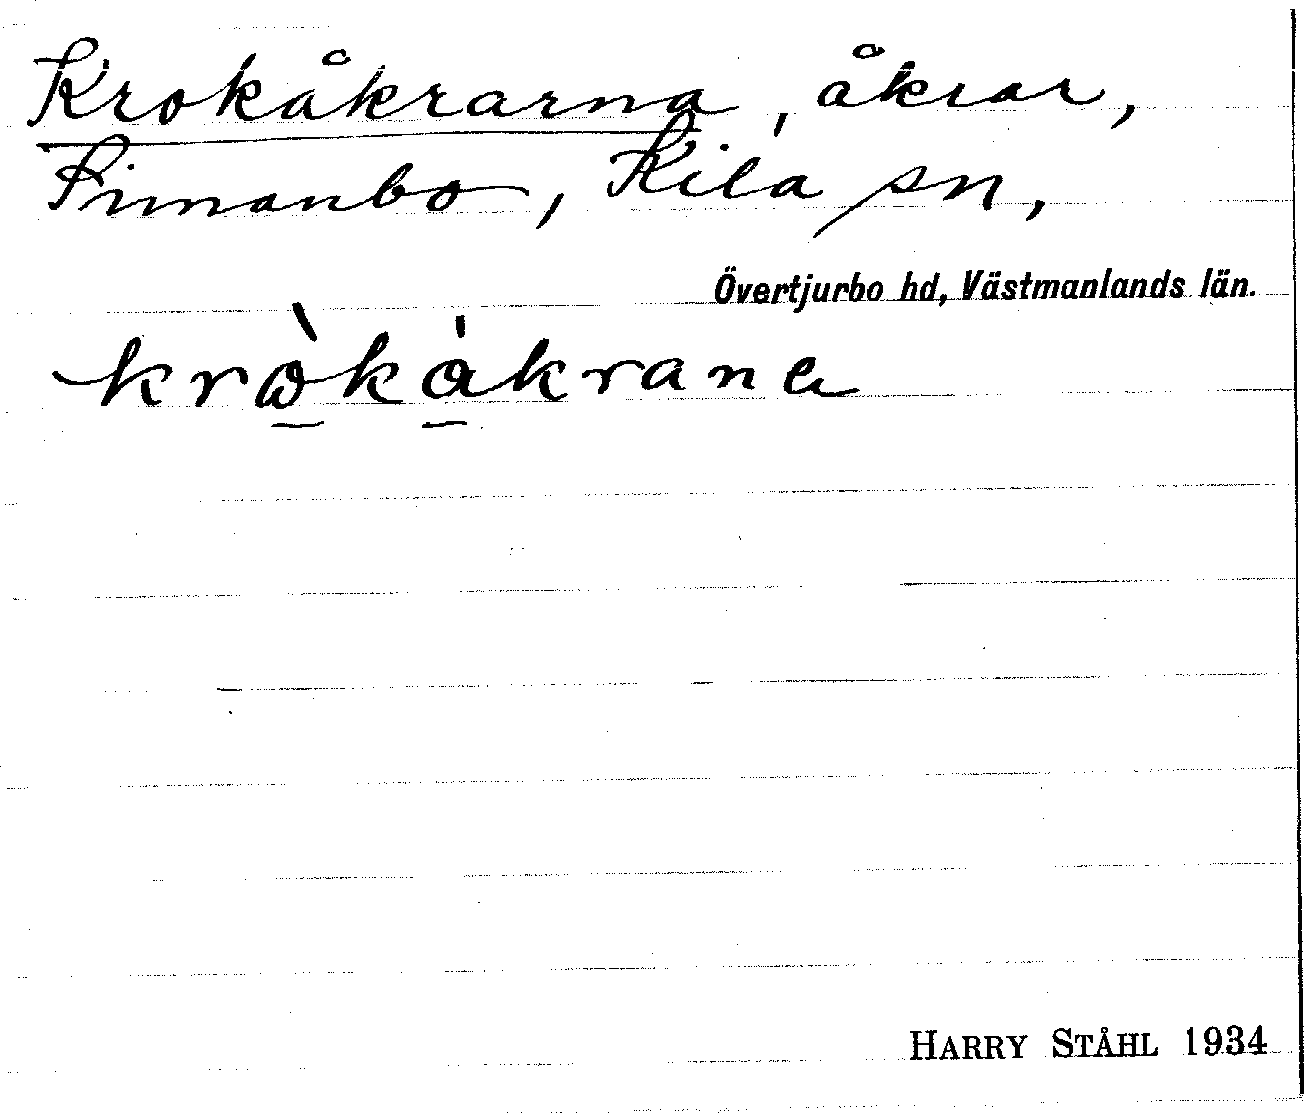 Krokåkrarna, åkrar,
Finnanbo, Kila sn,
Övertjurbo hd, Västmanlands län.
krò̲kå̲krana
HARRY STÅHL 1934